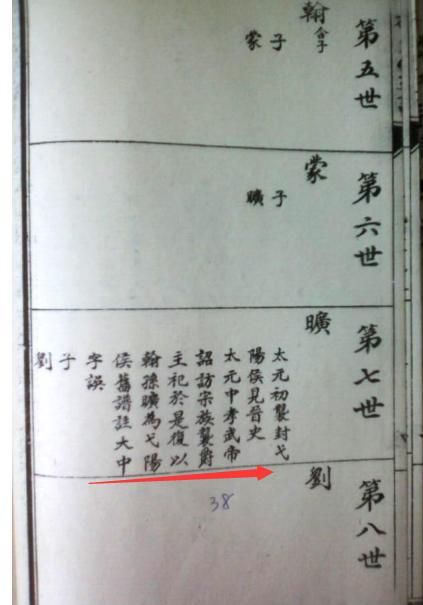 第五世
翰 合子
子
蒙
第六世
蒙
子
曠
第七世
曠
太元初襲封弋
陽侯見晉史
太元中孝武帝
詔訪宗族襲爵
主祀於是復以
翰孫曠為弋陽
侯舊譜註大中
字誤
子
劉
第八世
劉
38